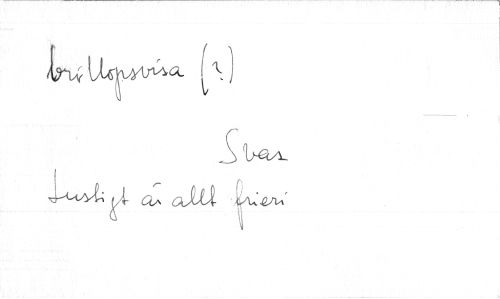 bröllopsvisa (?)
Svar
Lustigt är allt frieri